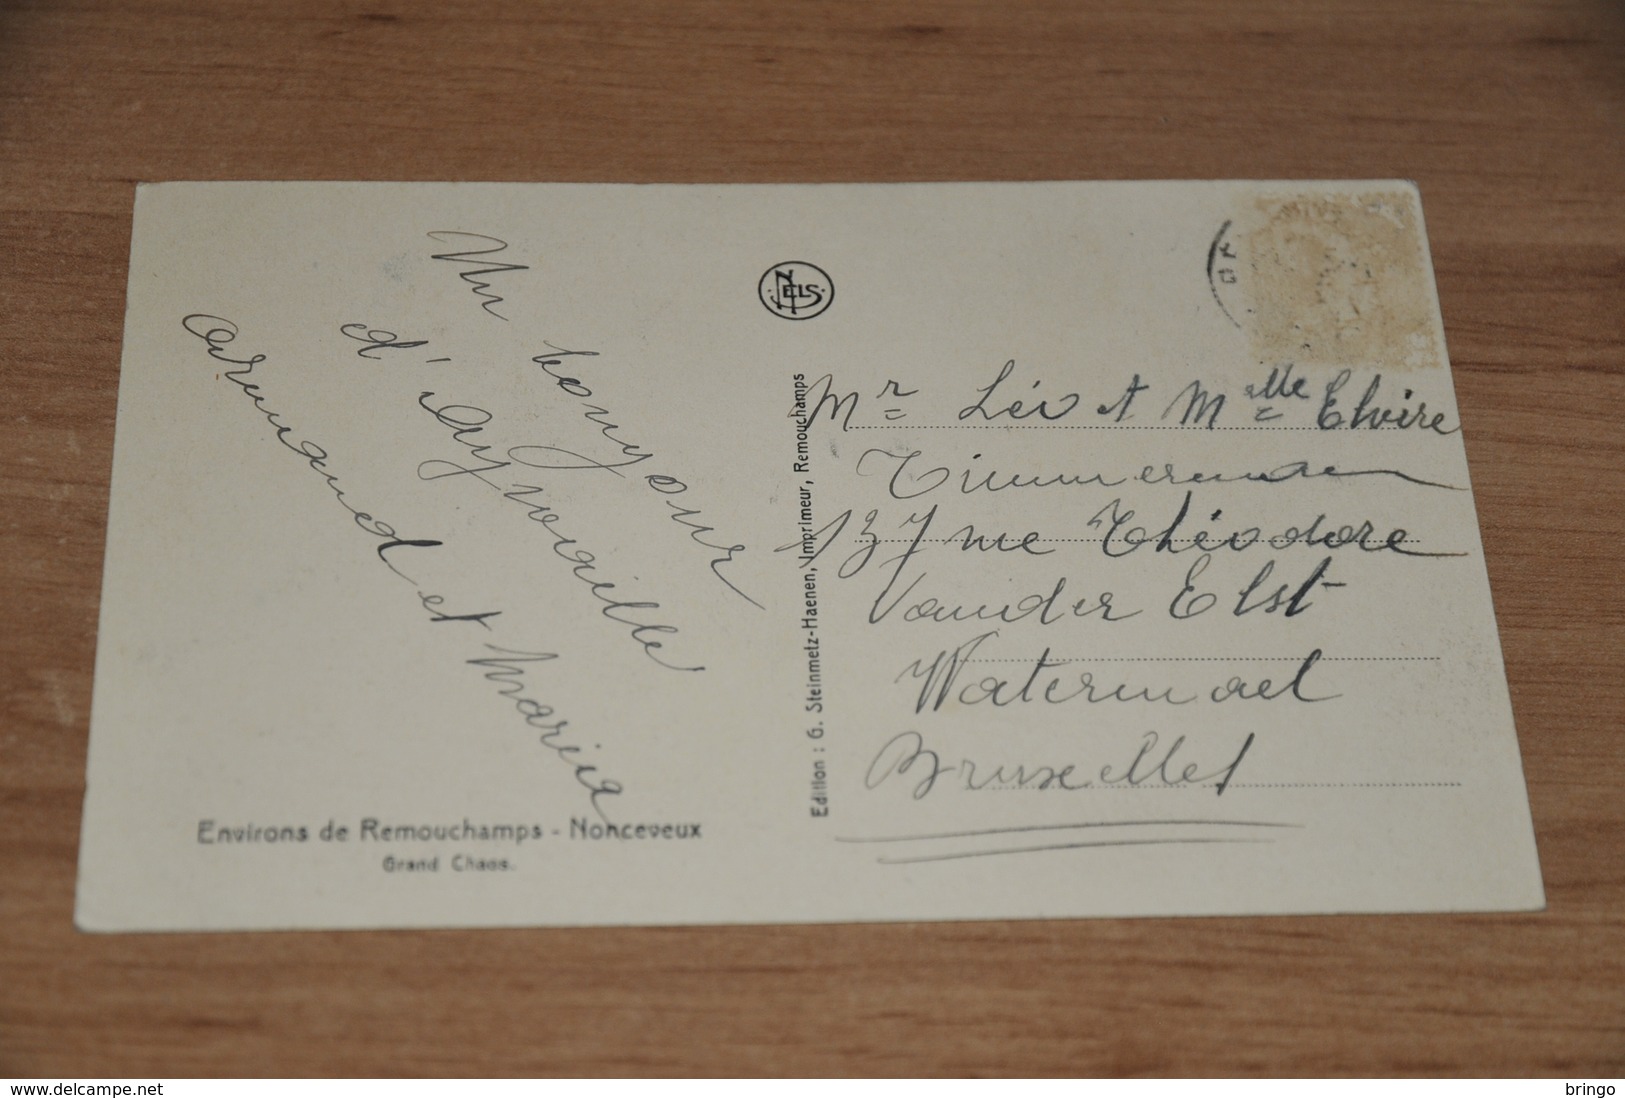 Un bonjour
d'Aywaille
Armand et Maria
Environs de Remouchamps - Nonceveux
Grand Chaos.
NELS
Edition : G. Steinmetz-Haenen, Imprimeur, Remouchamps
Mr Léo et Melle Elvire
Timmerman
137 rue Théodore
Vander Elst
Watermael
Bruxelles
www.delcampe.net
bringo